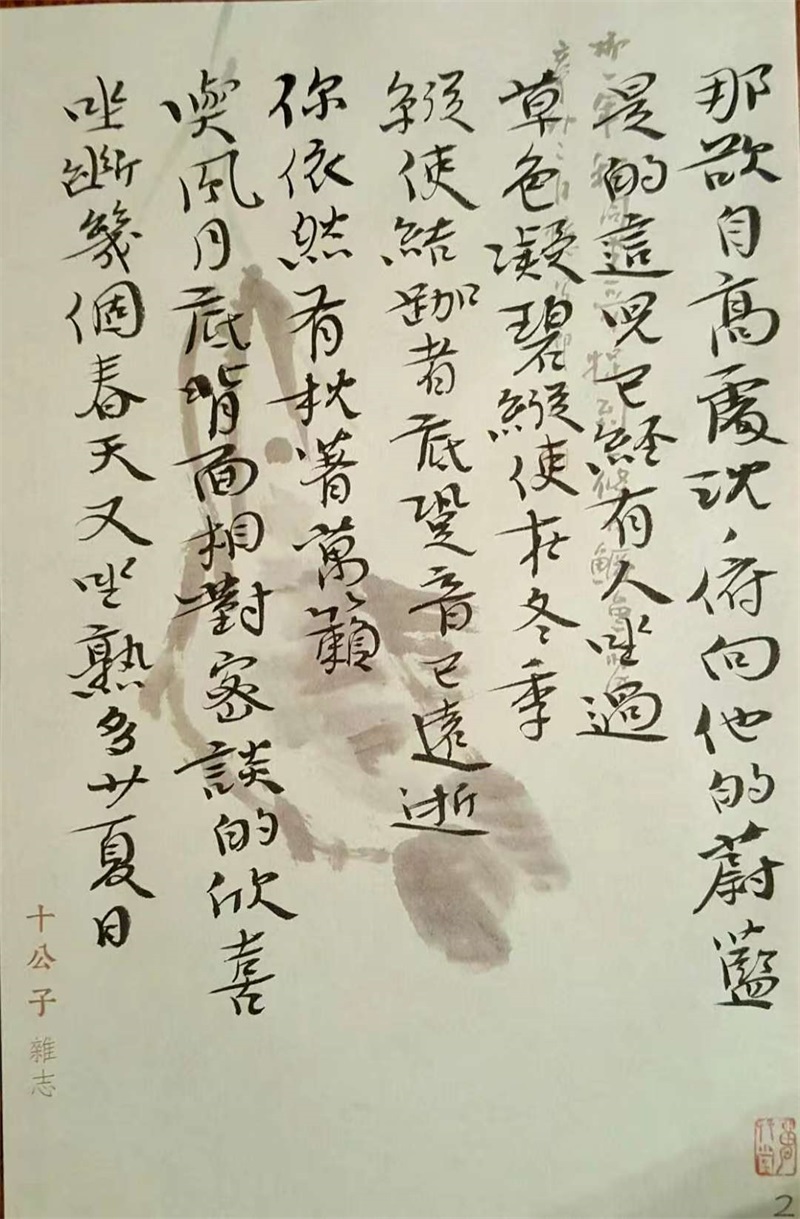 那欲自高處沈沈俯向他的蔚藍
是的這兒已經有人坐過
草色凝碧縱使在冬季
縱使結跏者底跫音已遠逝
你依然有枕著萬籟
與風月底背面相對密談的欣喜
坐斷幾個春天又坐熟多少夏日
十公子
雜志
2